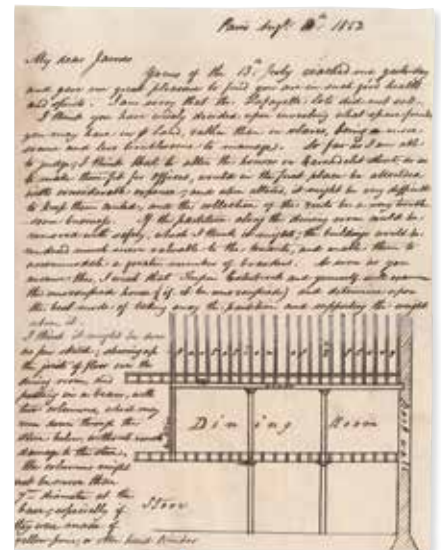 Paris Augt. 1853
My dear Jacob
Yours of the 13th July reached me yesterday
and gave me great pleasure to find you are in such good health
and spirits. I am sorry that the Lafayette lots did not sell.
I think you have wisely decided upon investing what spare funds
you may have in land, rather than in slaves, being a more
secure and less troublesome to manage. So far as I am able
to judge, I think that to alter the houses on Carondelet street, so as
to make them fit for offices, would in the first place be attended
with considerable expense; and when altered, it might be very difficult
to keep them rented, and the collection of the rents be a very
some business. If the partition along the dining room could be
removed with safety, which I think it might, the buildings would be
rendered much more valuable to the tenants, and enable them to
accommodate a greater number of boarders. As soon as you
receive this, I wish that and
the house (if it be unoccupied) and determine upon
the best mode of taking away the partition and supporting the weight
above it.
I think it might be done
as per sketch; shoring up
the joists of floor over the
dining room, and
putting in a beam, with
two columns, which may
run down through the
store below, without much
damage to the store.
The columns might
not be more than
7" diameter at the
base, especially if
they were made of
yellow pine, or other hard timber
Partition of 2d Story
Dining Room
Store